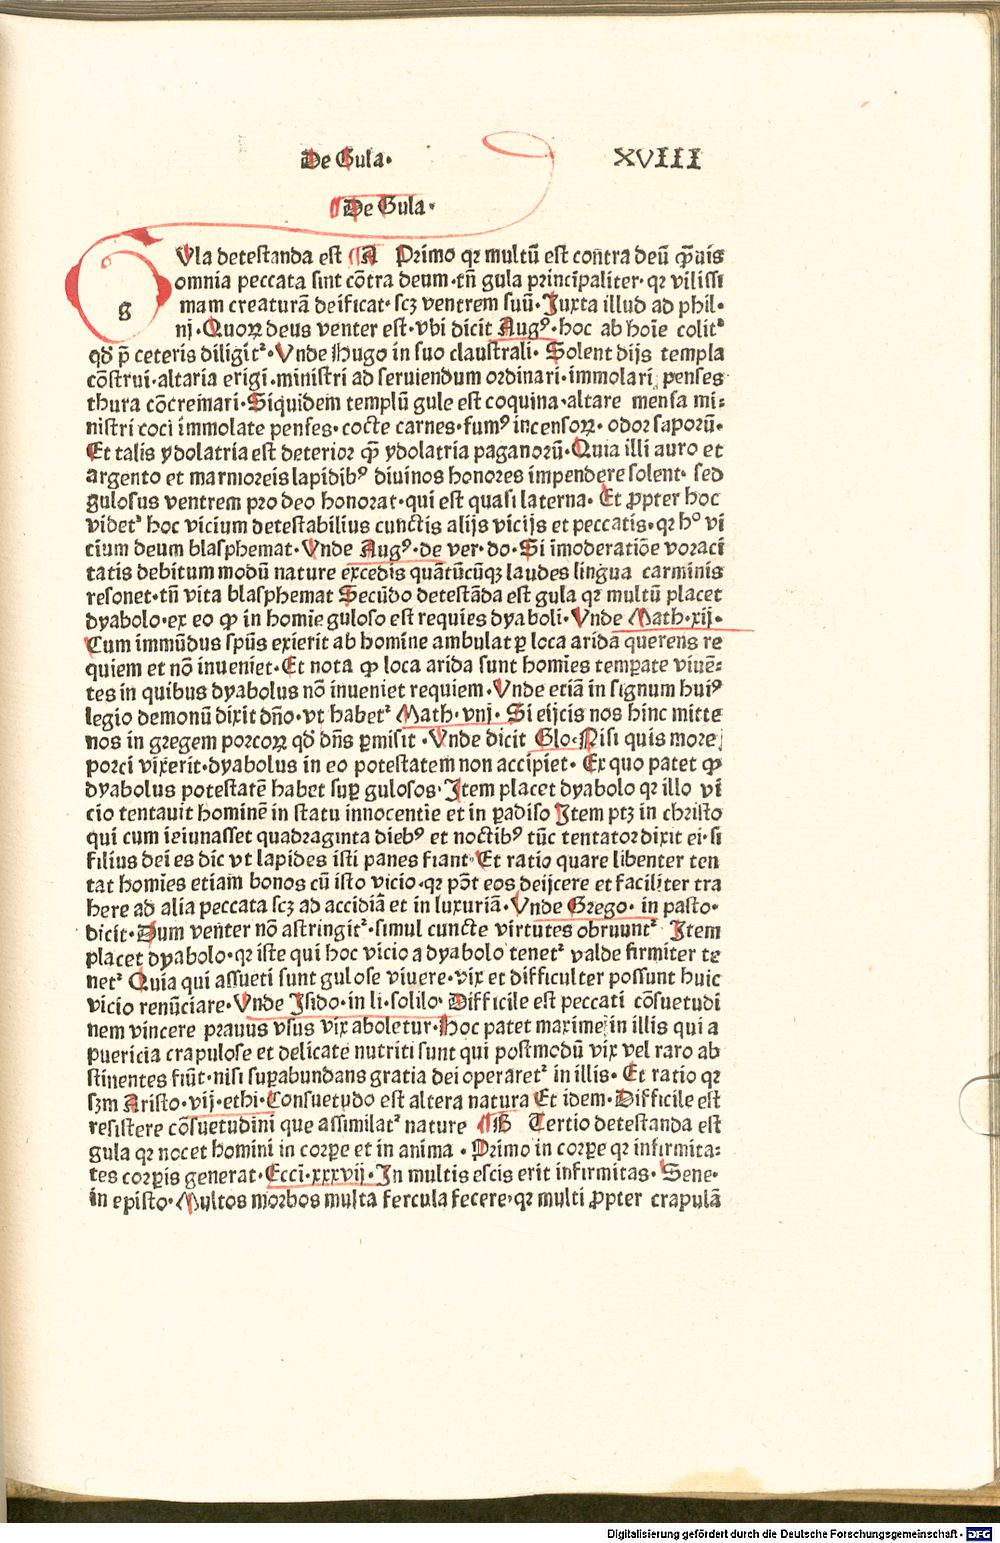 De Gula·
XVIII
De Gula·
g
Vla detestanda est A Primo qꝛ multū est contra deū qͣ̄uis
omnia peccata sint cōtra deum·tn̄ gula principaliter·qꝛ vilissi
mam creaturā deificat·scꝫ ventrem suū·Juxta illud ad phil·
nj·Quoꝝ deus venter est·vbi dicit Augꝰ·hoc ab hoīe colit᷑
qd̄ p̄ ceteris diligit᷑·Vnde Hugo in suo claustrali·Solent dijs templa
cōstrui·altaria erigi·ministri ad seruiendum ordinari·immolari penses
thura cōcremari·Siquidem templū gule est coquina·altare mensa mi:
nistri coci immolate penses·cocte carnes·fumꝰ incensoꝝ·odor saporū·
Et talis ydolatria est deterior qͣ̄ ydolatria paganorū·Quia illi auro et
argento et marmoreis lapidibꝰ diuinos honores impendere solent·sed
gulosus ventrem pro deo honorat·qui est quasi laterna·Et ꝓpter hoc
videt᷑ hoc vicium detestabilius cunctis alijs vicijs et peccatis·qꝛ hº vi
cium deum blasphemat·Vnde Augꝰ·de ver·do·Si īmoderatiōe voraci
tatis debitum modū nature excedis quātūcūqꝫ laudes lingua carminis
resonet·tn̄ vita blasphemat Secūdo detestāda est gula qꝛ multū placet
dyabolo·ex eo ꝙ in homīe guloso est requies dyaboli·Vnde Math·xij·
Cum immūdus spūs exierit ab homine ambulat ꝑ loca arida querens re
quiem et nō inueniet·Et nota ꝙ loca arida sunt homīes temꝑate viuē:
tes in quibus dyabolus nō inueniet requiem·Vnde etiā in signum huiꝰ
legio demonū dixit dn̄o·vt habet᷑ Math·vnj·Si eijcis nos hinc mitte
nos in gregem porcoꝝ qd̄ dn̄s ꝑmisit·Vnde dicit Glo·Nisi quis more
porci vixerit·dyabolus in eo potestatem non accipiet·Ex quo patet ꝙ
dyabolus potestatē habet suꝑ gulosos·Item placet dyabolo qꝛ illo vi
cio tentauit hominē in statu innocentie et in ꝑadiso Item ptꝫ in christo
qui cum ieiunasset quadraginta diebꝰ et noctibꝰ tūc tentator dixit ei·si
filius dei es dic vt lapides isti panes fiant·Et ratio quare libenter ten
tat homīes etiam bonos cū isto vicio·qꝛ pōt eos deijcere et faciliter tra
here ad alia peccata scꝫ ad accidiā et in luxuriā·Vnde Grego·in pasto·
dicit·Dum venter nō astringit᷑·simul cuncte virtutes obruunt᷑ Item
placet dyabolo·qꝛ iste qui hoc vicio a dyabolo tenet᷑ valde firmiter te
net᷑ Quia qui assueti sunt gulose viuere·vix et difficulter possunt huic
vicio renūciare·Vnde Isido·in li·solilo·Difficile est peccati cōsuetudi
nem vincere prauus vsus vix aboletur·Hoc patet maxime in illis qui a
puericia crapulose et delicate nutriti sunt qui postmodū vix vel raro ab
stinentes fiūt·nisi suꝑabundans gratia dei operaret᷑ in illis·Et ratio qꝛ
sꝫm Aristo·vij·ethi·Consuetudo est altera natura Et idem·Difficile est
resistere cōsuetudini que assimilat᷑ nature B Tertio detestanda est
gula qꝛ nocet homini in corꝑe et in anima·Primo in corꝑe qꝛ infirmita:
tes corꝑis generat·Ecci·xxxvij·In multis escis erit infirmitas·Sene·
in episto·Multos morbos multa fercula fecere·qꝛ multi ꝓpter crapulā
Digitalisierung gefördert durch die Deutsche Forschungsgemeinschaft - DFG